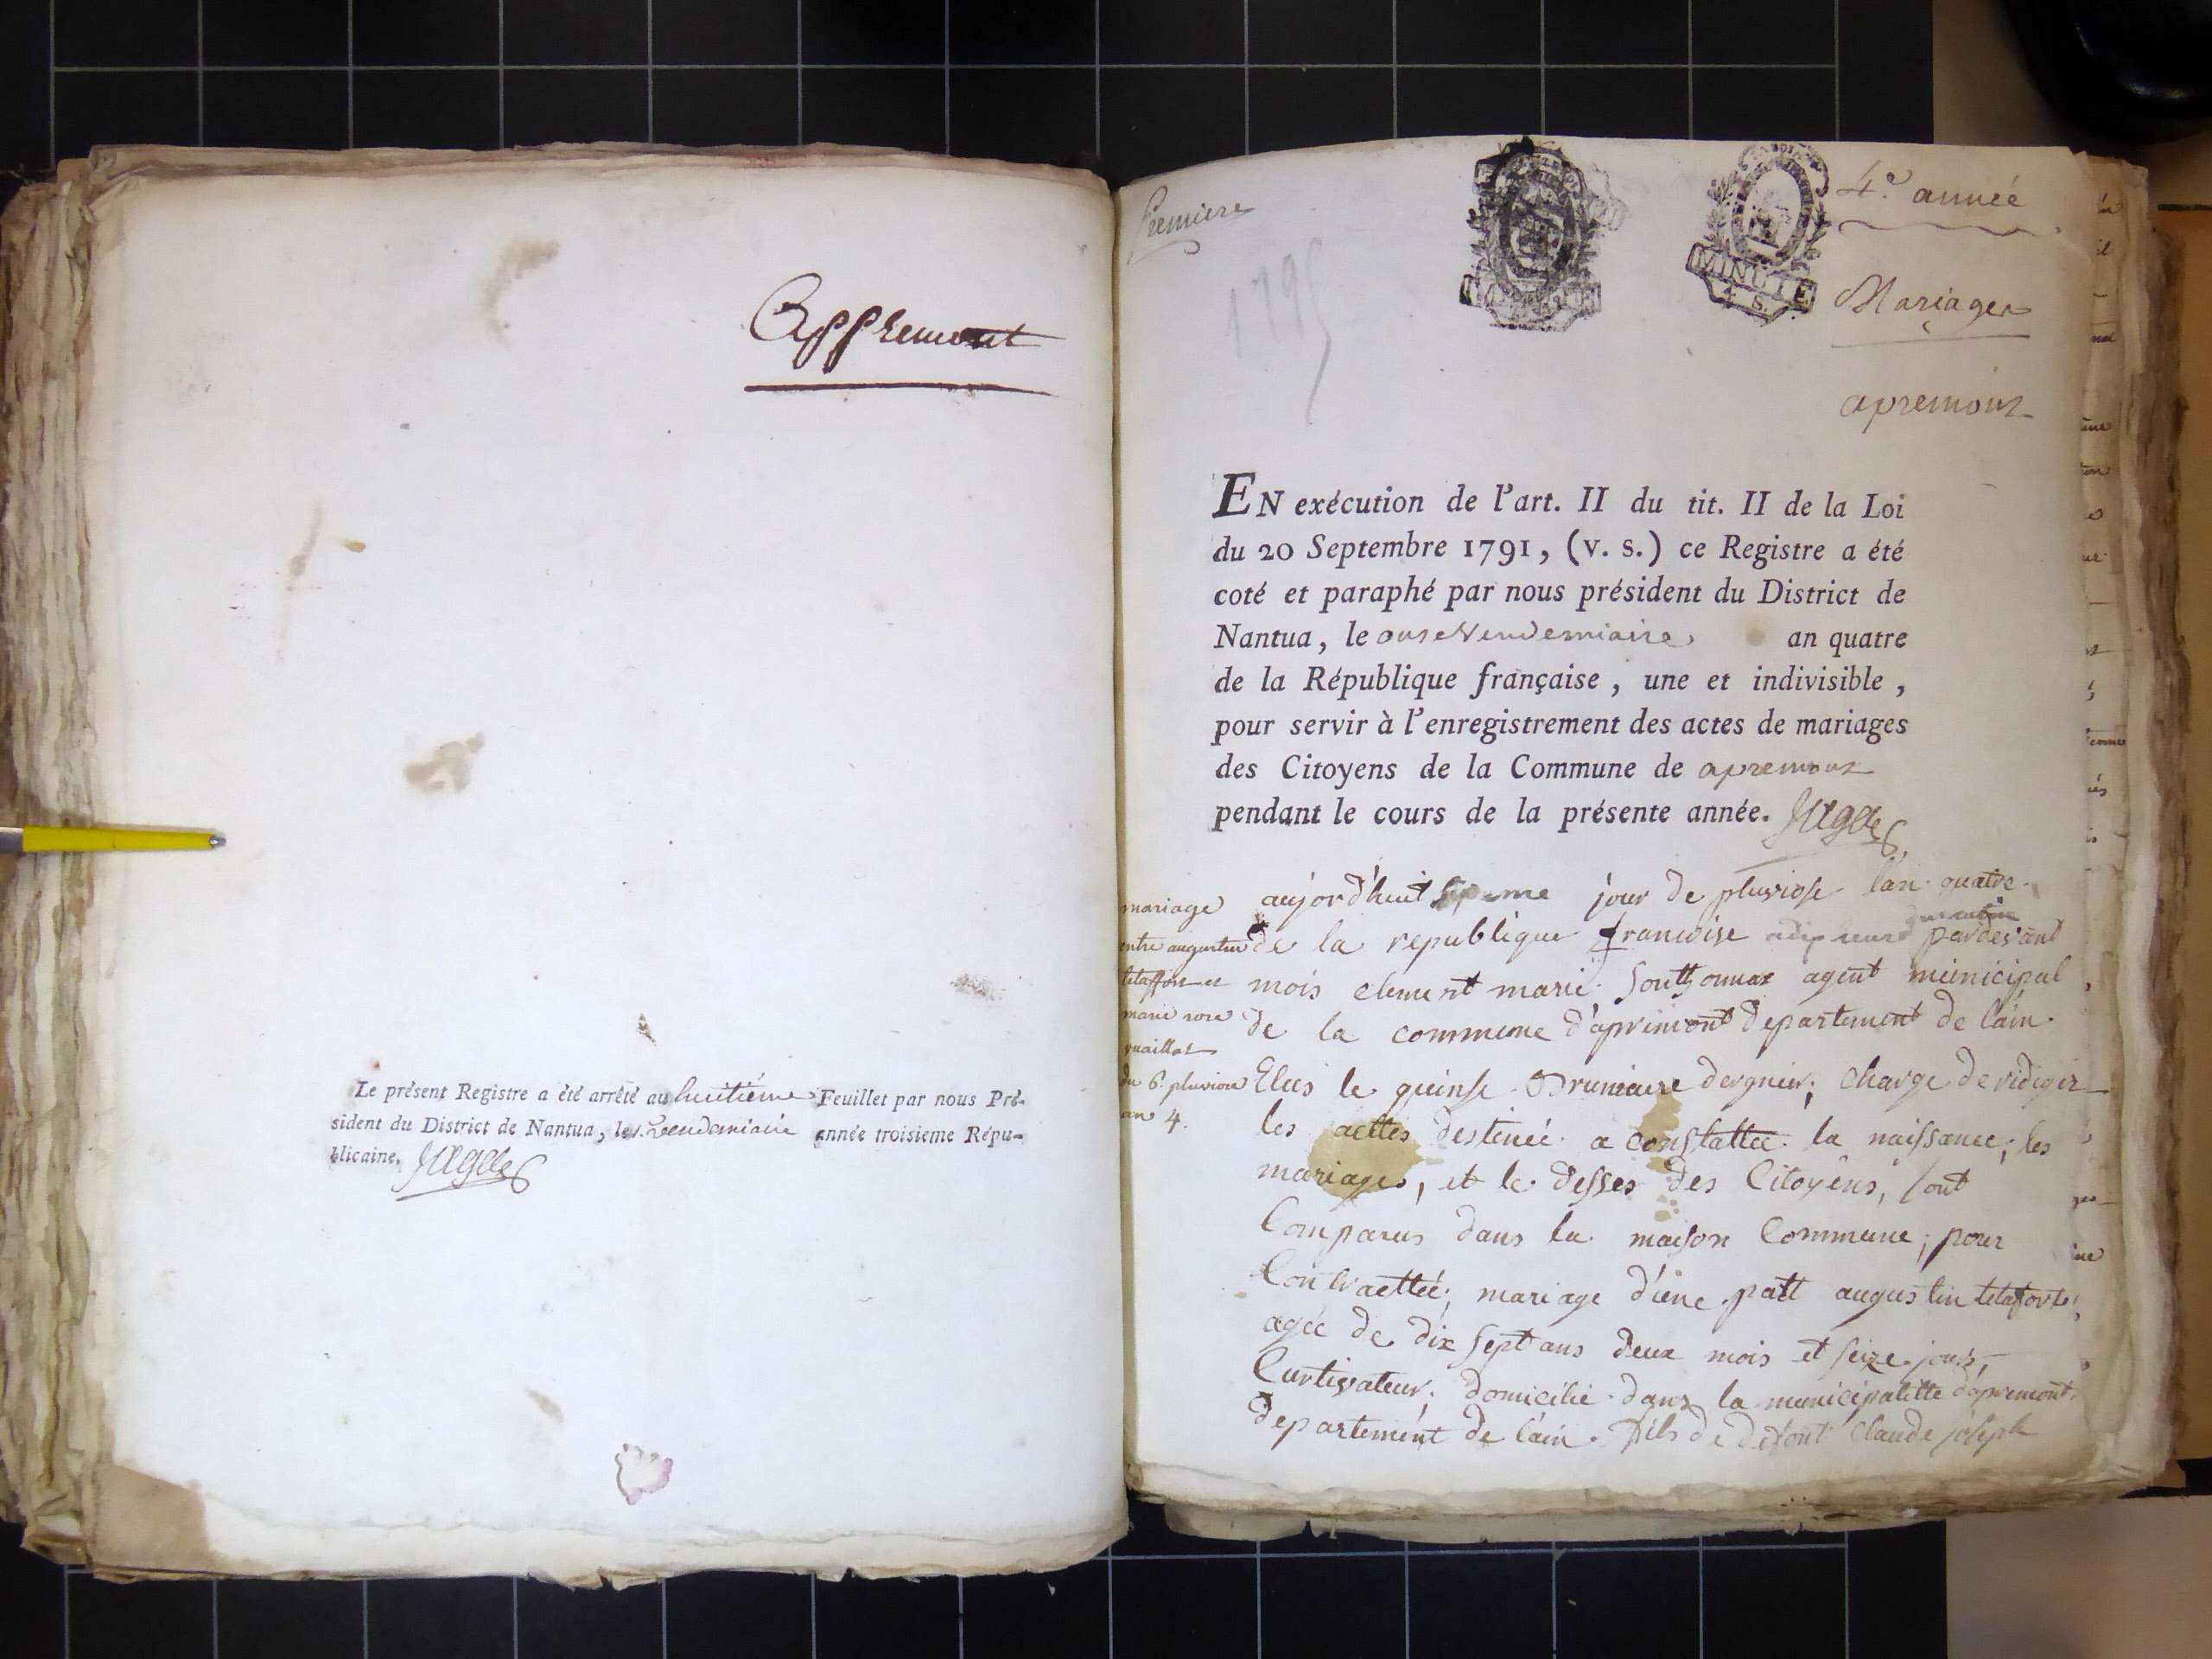 Appremont
Le présent Registre a été arrêté au huitième Feuillet par nous Pré-
sident du District de Nantua, le Vendemiaire année troisieme Répu-
blicaine.
Premiere
1795
MINUTE
4. S.
4e année
Mariages
apremont
EN exécution de l'art. II du tit. II de la Loi
du 20 Septembre 1791, (v. s.) ce Registre a été
coté et paraphé par nous président du District de
Nantua, le onse Vendemiaire an quatre
de la République française, une et indivisible,
pour servir à l'enregistrement des actes de mariages
des Citoyens de la Commune de apremont
pendant le cours de la présente année.
mariage
entre augustin
letaffort et
marie rose
du 6. pluviose
an 4.
aujord'huit jour de pluviose l'an quatre
de la republique francoise pardevant
mois clement marie Southonnax agent municipal
de la commune d'aprimont departement de l'ain.
Elus le quinse Brumaire dergnier; charge de ridiger
les acttes destineé a constattee la naissance; les
mariages, et le desses des Citoyens, sont
Comparus dans la maison Commune; pour
Contracttée; mariage d'une patt augustin letafort
ageé de dix sept ans deux mois et seize jours,
Curtivateur; domicilié dans la municipalitte d'apremont
departement de l'ain. fils de defont Claude joseph